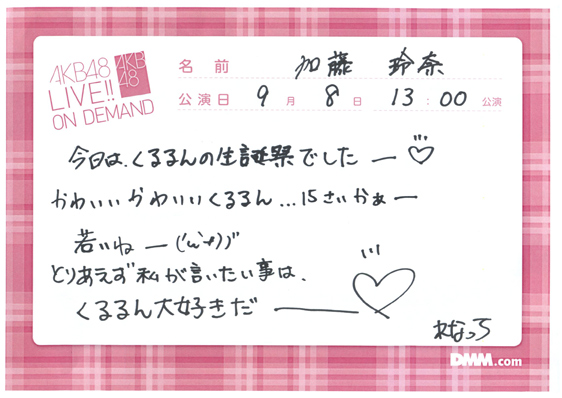 AKB48
LIVE!!
ON DEMAND
AKB
48
名前 加藤 玲奈
公演日 9月 8日 13:00 公演
今日は、くるるんの生誕祭でしたー♡
かわいいかわいいくるるん...15さいかぁー
若いねー('ω'*)
とりあえず私が言いたい事は、
くるるん大好きだー♡
れなっち
DMM.com